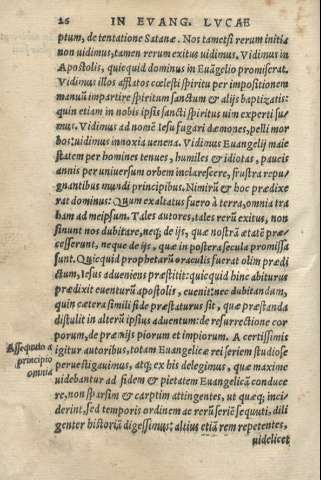 26 IN EVANG. LVCAE
ptum, de tentatione Satanæ. Nos tametsi rerum initia
non uidimus, tamen rerum exitus uidimus. Vidimus in
Apostolis, quicquid dominus in Euãgelio promiserat.
Vidimus illos afflatos cœlesti spiritu per impositionem
manuũ impartire spiritum sanctum & alijs baptizatis:
quin etiam in nobis ipsis sancti spiritus uim experti su-
mus. Vidimus ad nomẽ Iesu fugari dæmones, pelli mor
bos: uidimus innoxia uenena. Vidimus Euangelij maie
statem per homines tenues, humiles & idiotas, paucis
annis per uniuersum orbem inclarescere, frustra repu-
gnantibus mundi principibus. Nimirũ & hoc prædixe
rat dominus: Quum exaltatus fuero à terra, omnia tra
ham ad meipsum. Tales autores, tales rerũ exitus, non
sinunt nos dubitare, neq; de ijs, quæ nostrã ætatẽ præ-
cesserunt, neque de ijs, quæ in postera secula promissa
sunt. Quicquid prophetarũ oraculis fuerat olim prædi
ctum, Iesus adueniens præstitit: quicquid hinc abiturus
prædixit euenturũ apostolis, euenit: nec dubitandum,
quin cætera simili fide præstaturus sit, quæ præstanda
distulit in alterũ ipsius aduentum: de resurrectione cor
porum, de præmijs piorum et impiorum. A certissimis
Assequuto a
principio
omnia
igitur autoribus, totam Euangelicæ rei seriem studiose
peruestigauimus, atq; ex his delegimus, quæ maxime
uidebantur ad fidem & pietatem Euangelicã conduce
re, non sparsim & carptim attingentes, ut quæq; inci-
derint, sed temporis ordinem ac rerũ seriẽ sequuti, dili
genter historiã digessimus: altius etiã rem repetentes,
uidelicet